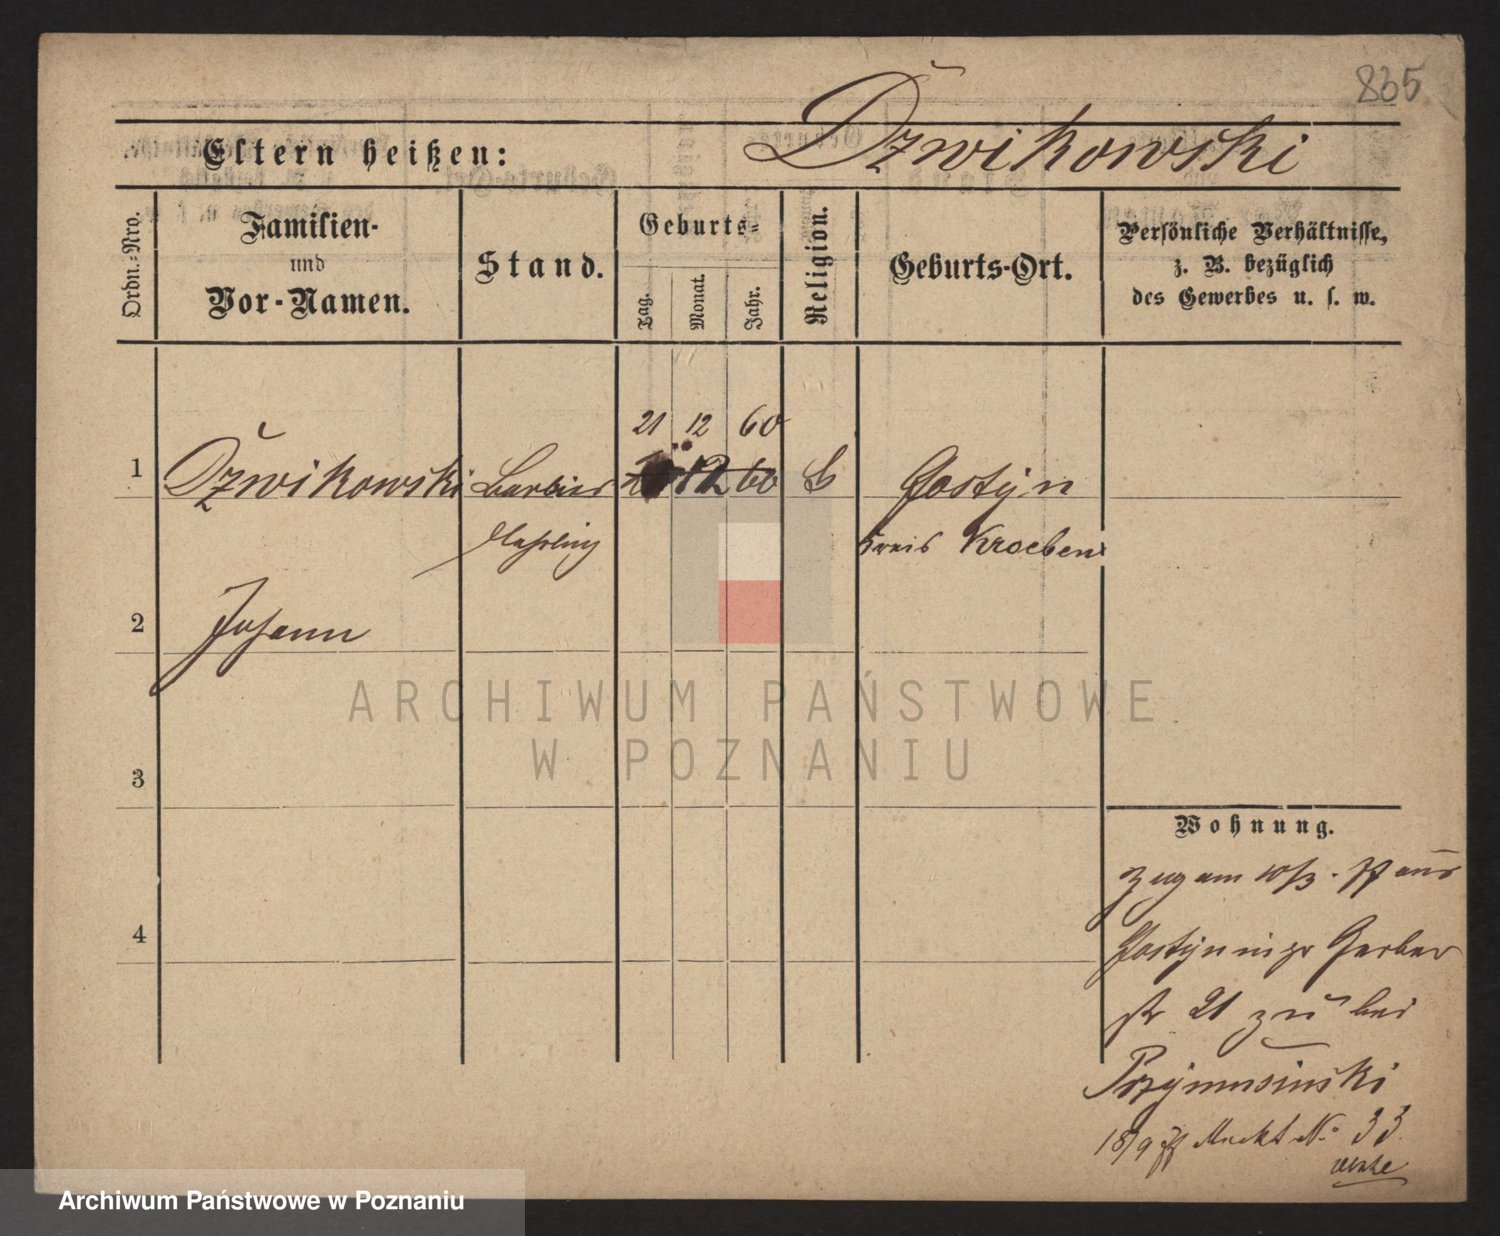 865
Eltern heißen: Dżwikowski
Ordn.-Nro.
Familien-
und
Vor-Namen.
Stand.
Geburts-
Tag.
Monat.
Jahr.
Religion.
Geburts-Ort.
Persönliche Verhältnisse,
z. B. bezüglich
des Gewerbes u. s. w.
21 12 60
1 Dżwikowski Barbier 12 60 C Gostÿn
Kreis Kroeben
2 Johann
3
4
Wohnung.
Zug am 10/3. 77 aus
Gostÿn Gerber
str 21 zu bei
Przÿmusinski
18/9 77 Markt No 33
ARCHIWUM PAŃSTWOWE
W POZNANIU
Archiwum Państwowe w Poznaniu